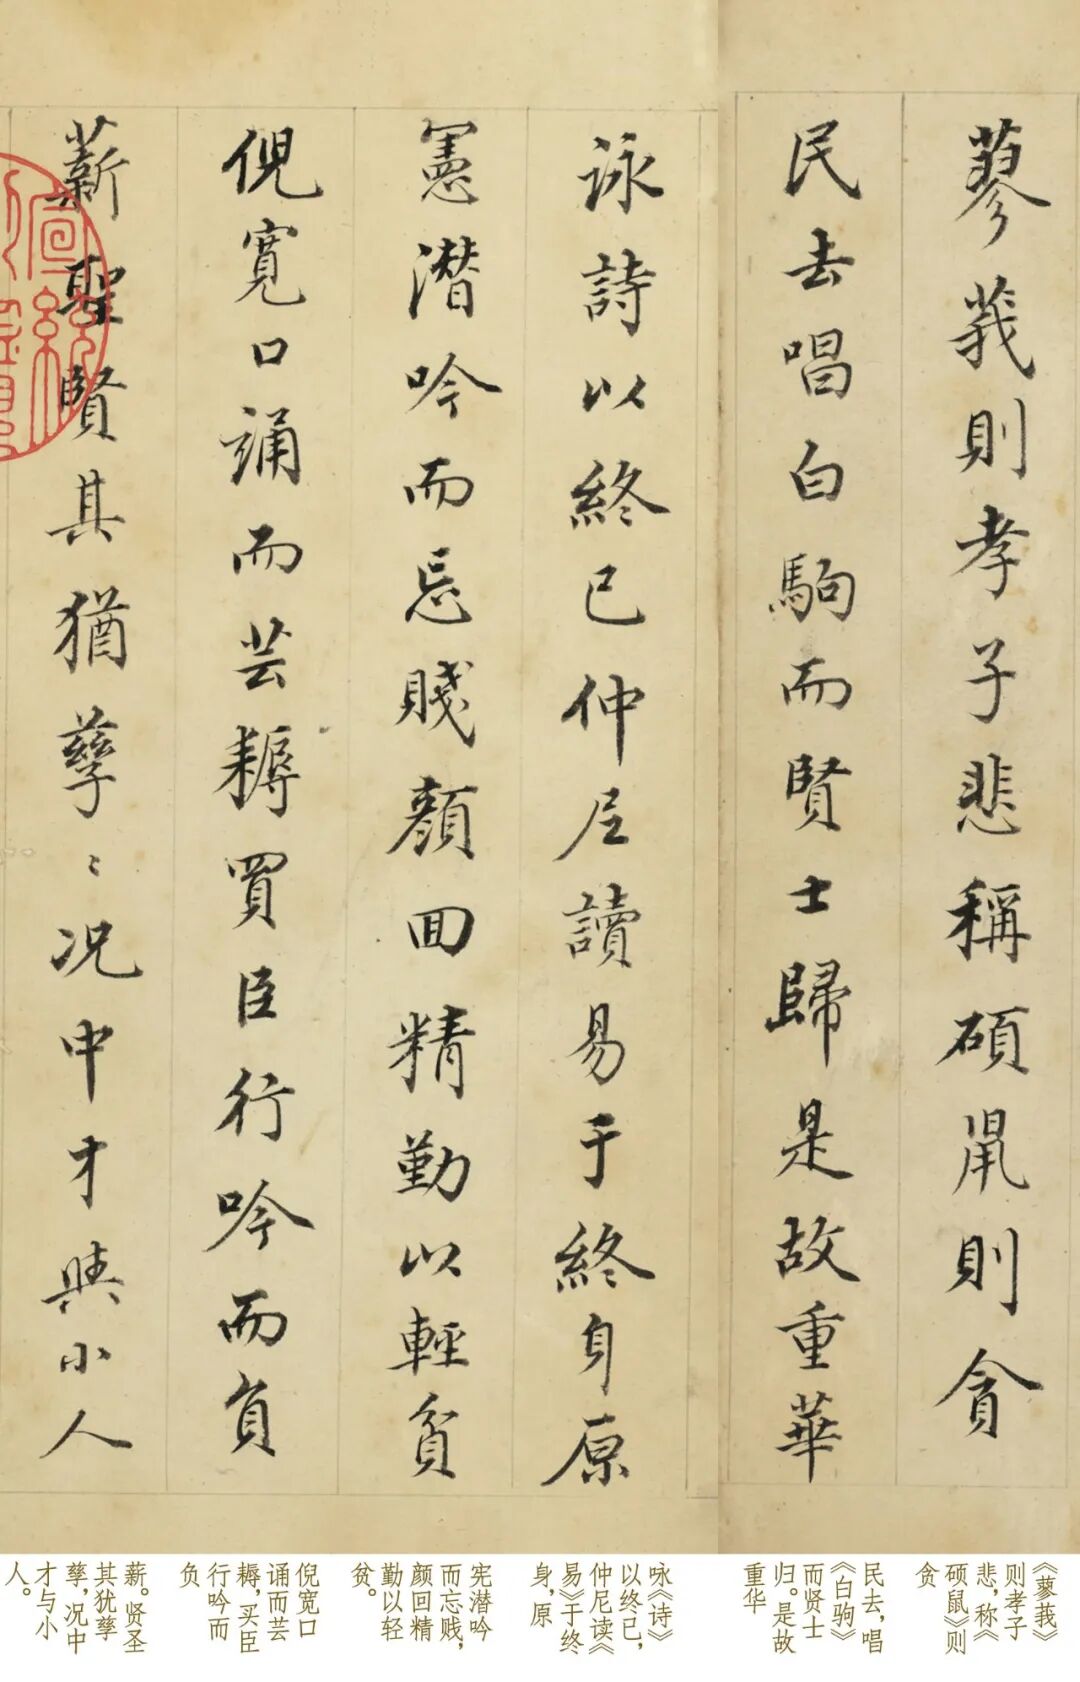 蓼莪則孝子悲稱碩鼠則貪
民去唱白駒而賢士歸是故重華
詠詩以終已仲尼讀易于終身原
憲潛吟而忘賤顏回精勤以輕貧
倪寬口誦而芸耨買臣行吟而負
薪聖賢其猶孳〻况中才與小人
《蓼莪》
则孝子
悲，称《
硕鼠》则
贪
民去，唱
《白驹》
而贤士
归。是故
重华
咏《诗》
以终已，
仲尼读《
易》于终
身，原
宪潜吟
而忘贱，
颜回精
勤以轻
贫。
倪宽口
诵而芸
耨，买臣
行吟而
负
薪。贤圣
其犹孳
孳，况中
才与小
人。